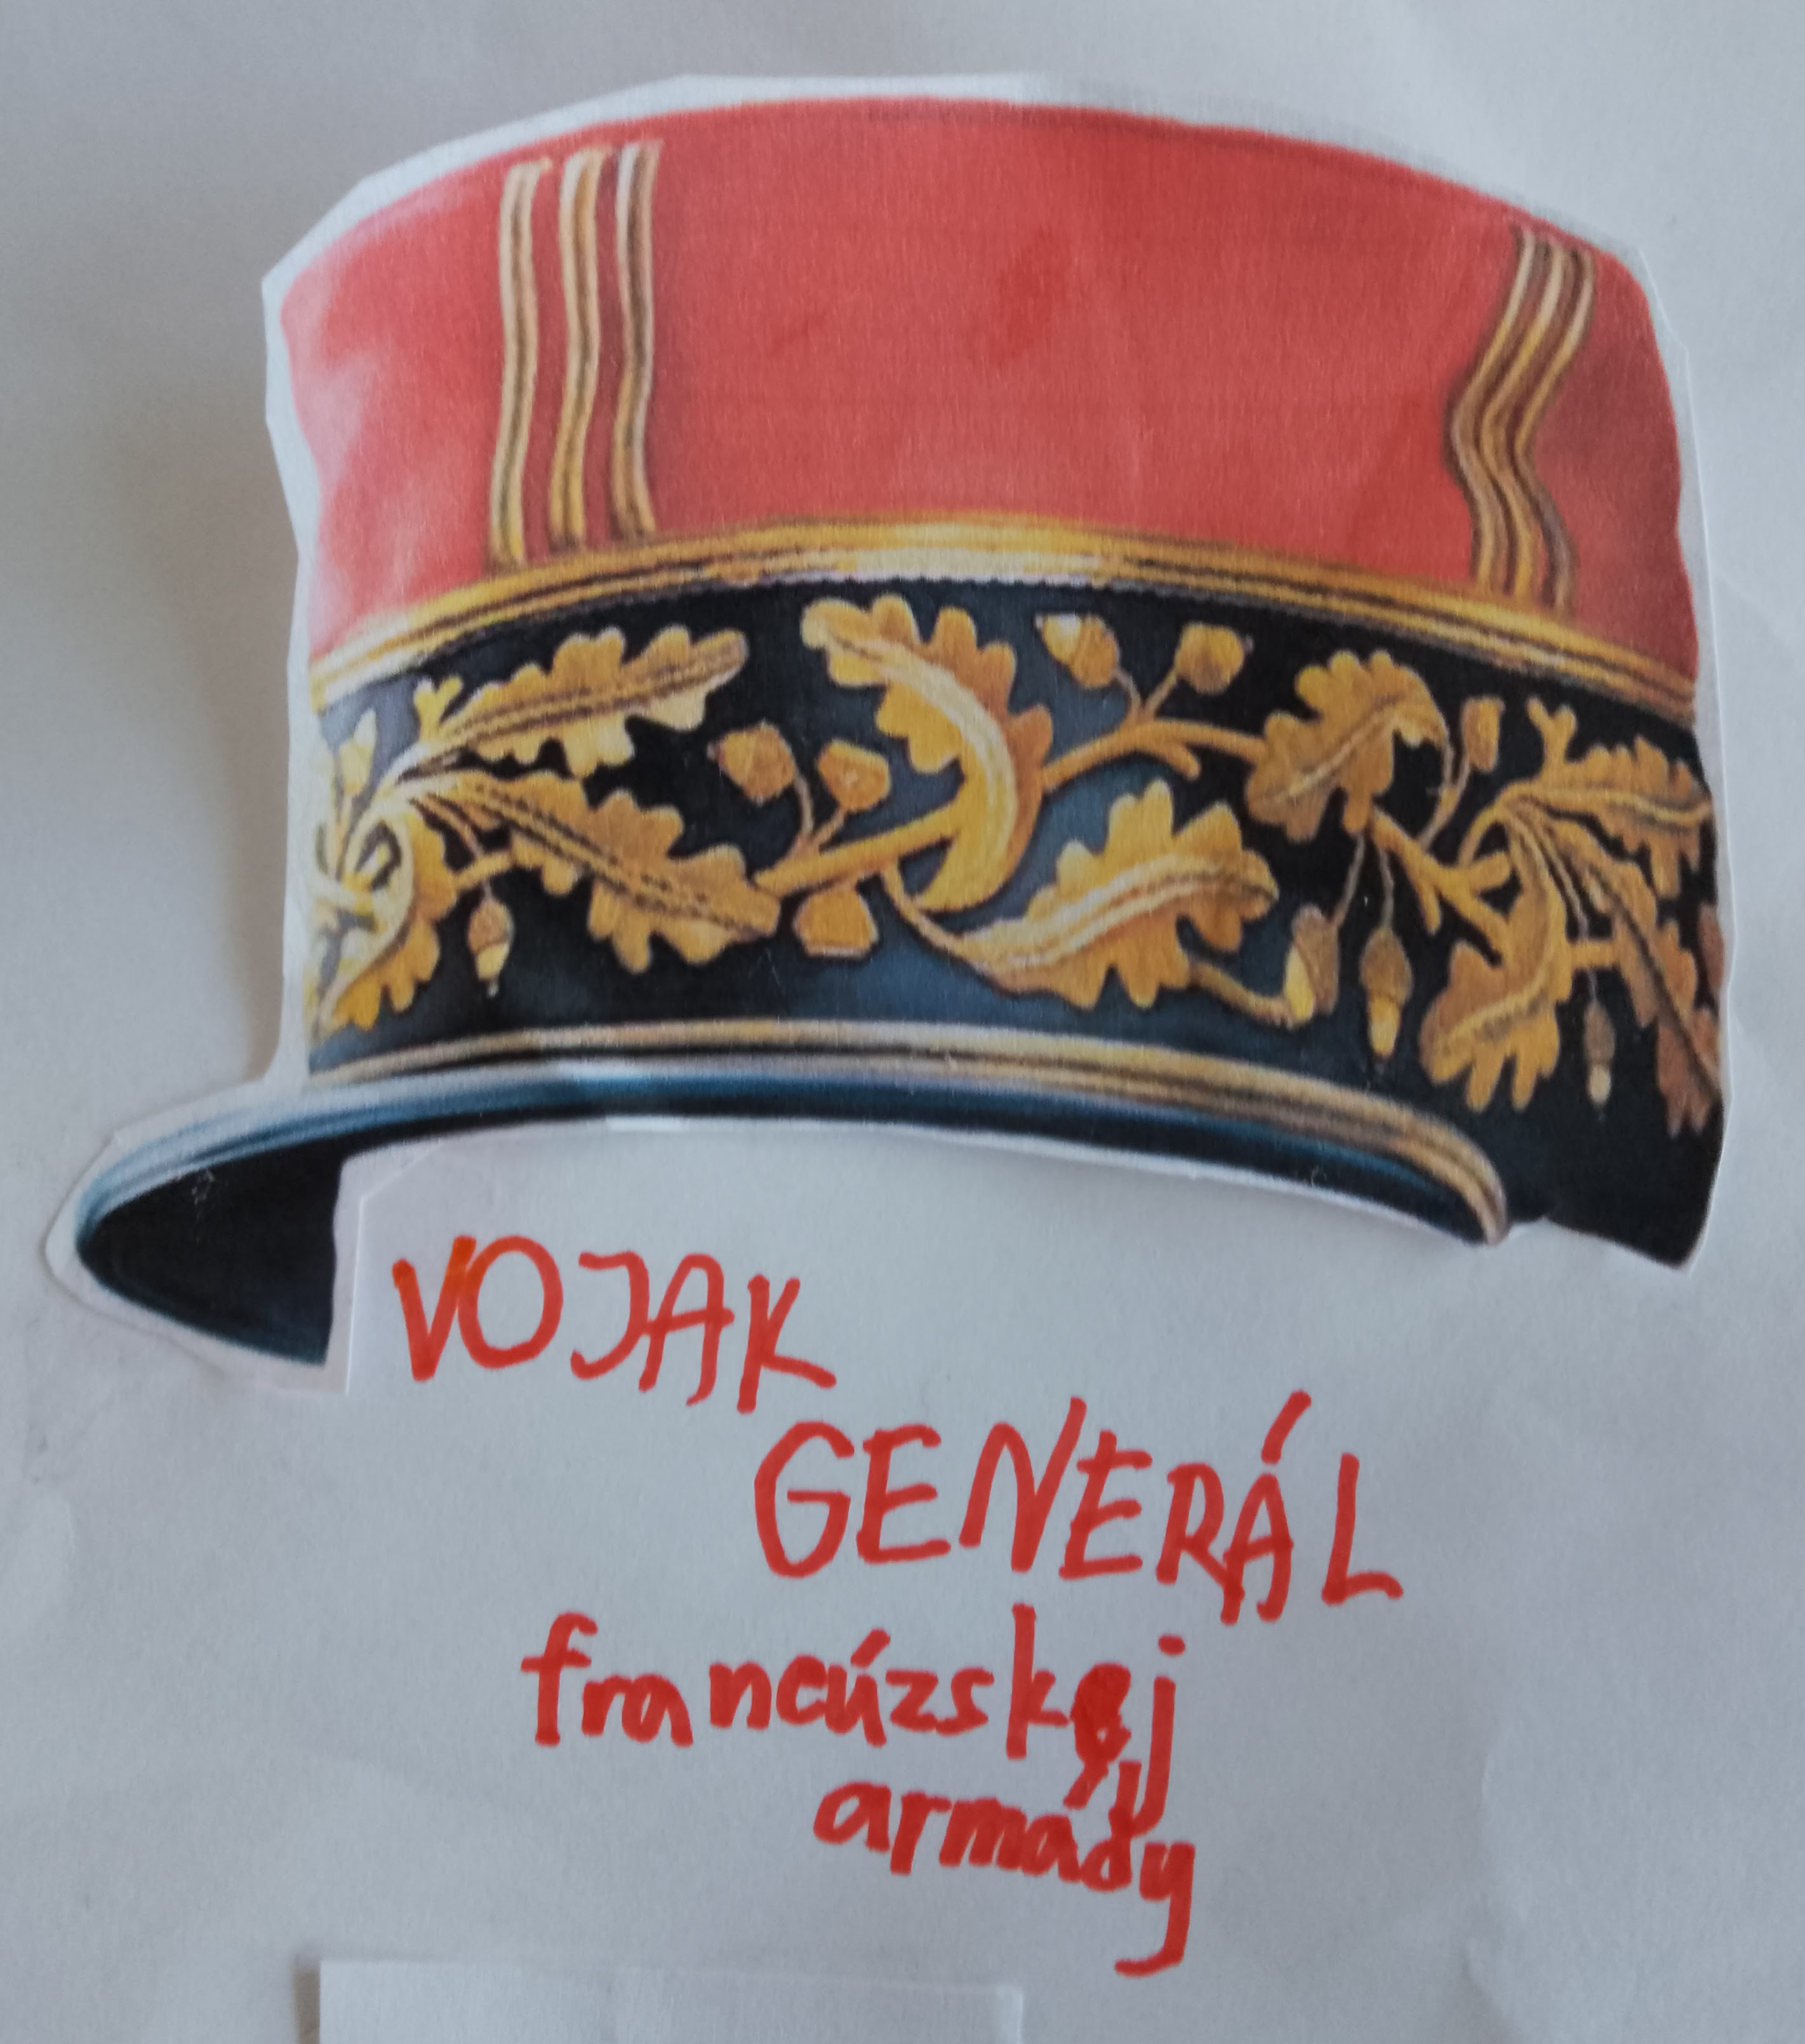 VOJAK
GENERÁL
francúzskej
armády